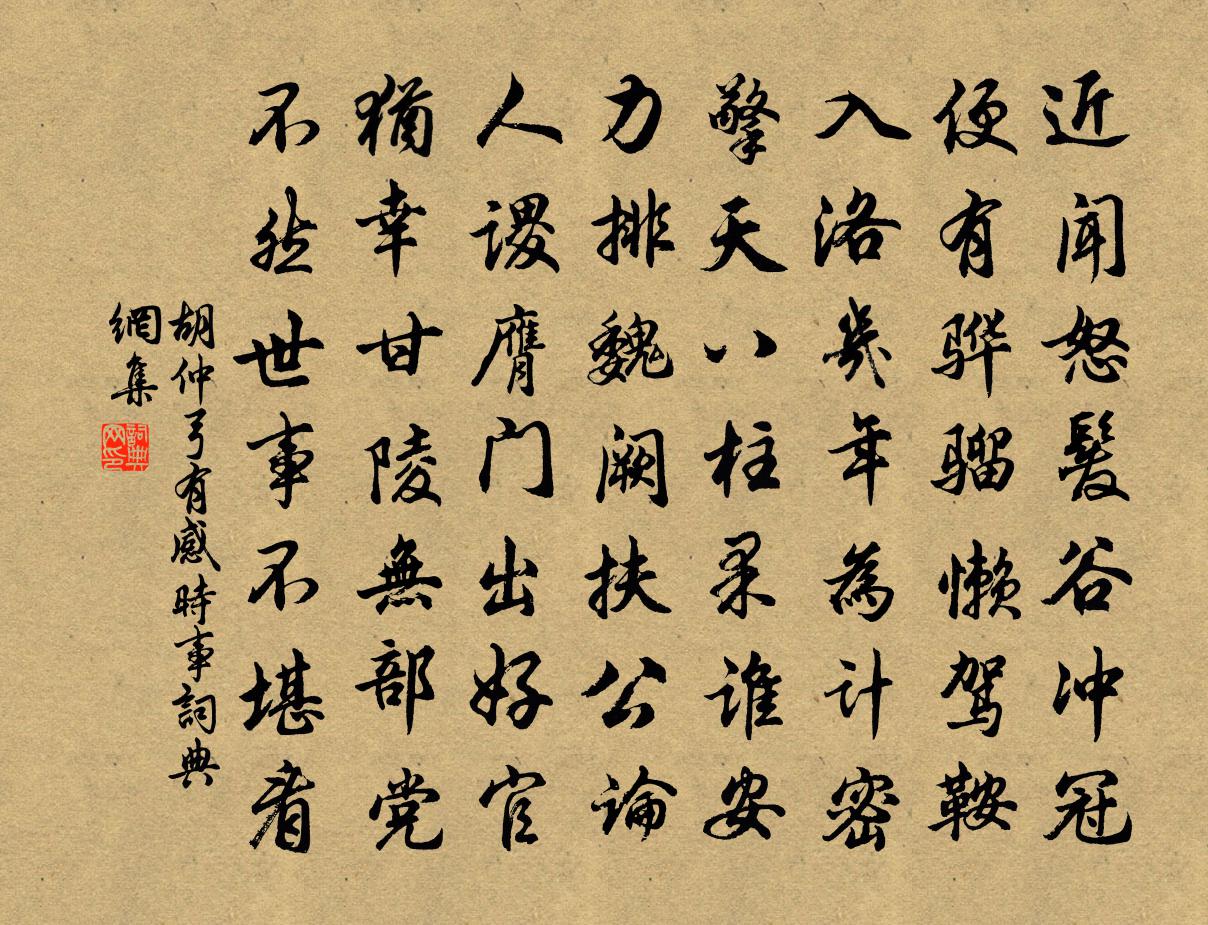 近闻怒髮谷冲冠
便有骅骝懒驾鞍
入洛幾年為计密
擎天八柱果谁安
力排魏阙扶公论
人谡膺门出好官
猶幸甘陵無部党
不然世事不堪看
胡仲弓有感時事詞典
網集
詞典网印